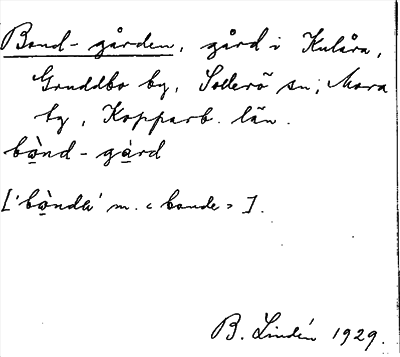 Bond-gården, gård i Kulåra,
Gruddbo by, Sollerö sn, Mora
tg, Kopparb. län.
bȯ̱nd-gȧ̱rd
['bȯ̱nda' m. < bonde > ].
B. Lindén 1929.